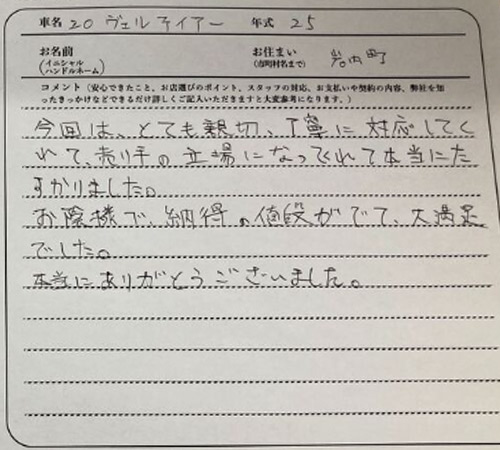 車名 20 ヴェルファイアー 年式 25
お名前 (イニシャル ハンドルネーム) お住まい (市町村名まで) 岩内町
コメント (安心できたこと、お店選びのポイント、スタッフの対応、お支払いや契約の内容、弊社を知
ったきっかけなどできるだけ詳しくご記入いただきますと大変参考になります。)
今回は、とても親切、丁寧に対応してく
れて、売り手の立場になってくれて本当にた
すかりました。
お陰様で、納得の値段がでて、大満足
でした。
本当にありがとうございました。